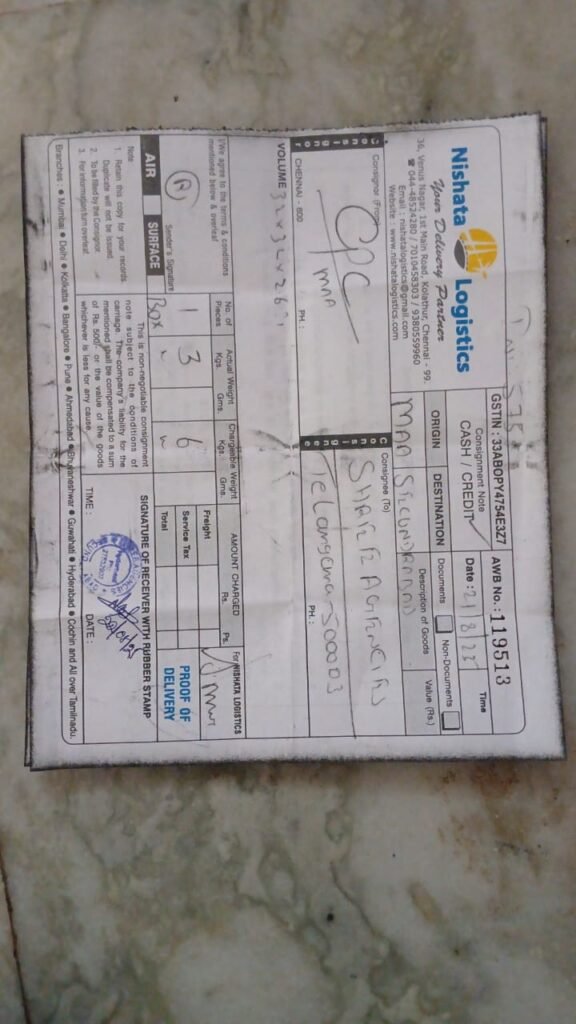 Nishata Logistics
Your Delivery Partner
36, Venus Nagar, 1st Main Road, Kolathur, Chennai - 99.
☎ 044-48524280 / 7010458303 / 9380559960
Email : nishatalogistics@gmail.com
Website : www.nishatalogistics.com
GSTIN : 33ABOPY4754E3Z7
Consignment Note
CASH / CREDIT
AWB No.: 119513
Date : 2/8/22
Time
ORIGIN
DESTINATION
Documents
Non-Documents
Description of Goods
Value (Rs.)
MAA SECUNDRABAD
Consignor (From)
CPC
MAA
CHENNAI - 600
PH. :
Consignee (To)
SHAFE AGENCIES
Telangana-500003
PH. :
VOLUME 32x32x26
I/We agree to the terms & conditions
mentioned below & overleaf
Sender's Signature
No. of Pieces
Actual Weight
Kgs. Gms.
Chargeable Weight
Kgs. Gms.
AMOUNT CHARGED
Rs. Ps.
For NISHATA LOGISTICS
1 3 6
BOX
Freight
Service Tax
Total
PROOF OF
DELIVERY
AIR
SURFACE
Note
1. Retain this copy for your records
Duplicate will not be issued
2. To be filled by the Consignor.
3. For information turn overleaf.
This is non-negotiable consignment
note subject to the conditions of
carriage. The company's liability for the
mentioned shall be compensated to a sum
of Rs. 500/- or the value of the goods
whichever is less for any cause.
SIGNATURE OF RECEIVER WITH RUBBER STAMP
TIME :
DATE :
Branches : ● Mumbai ● Delhi ● Kolkatta ● Bangalore ● Pune ● Ahmedabad ● Bhubaneshwar ● Guwahati ● Hyderabad ● Cochin and All over Tamilnadu.